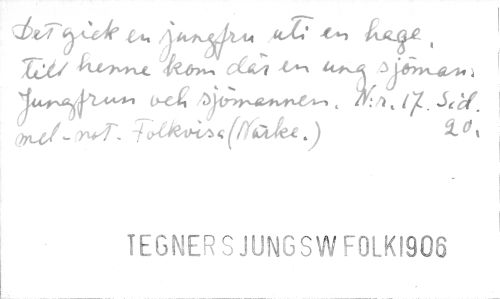 Det gick en jungfru uti en hage,
till henne kom där en ung sjöman.
Jungfrun och sjömannen. N:r. 17. Sid.
mel-not. Folkvisa (Närke.) 20.
TEGNERSJUNGSWFOLK1906